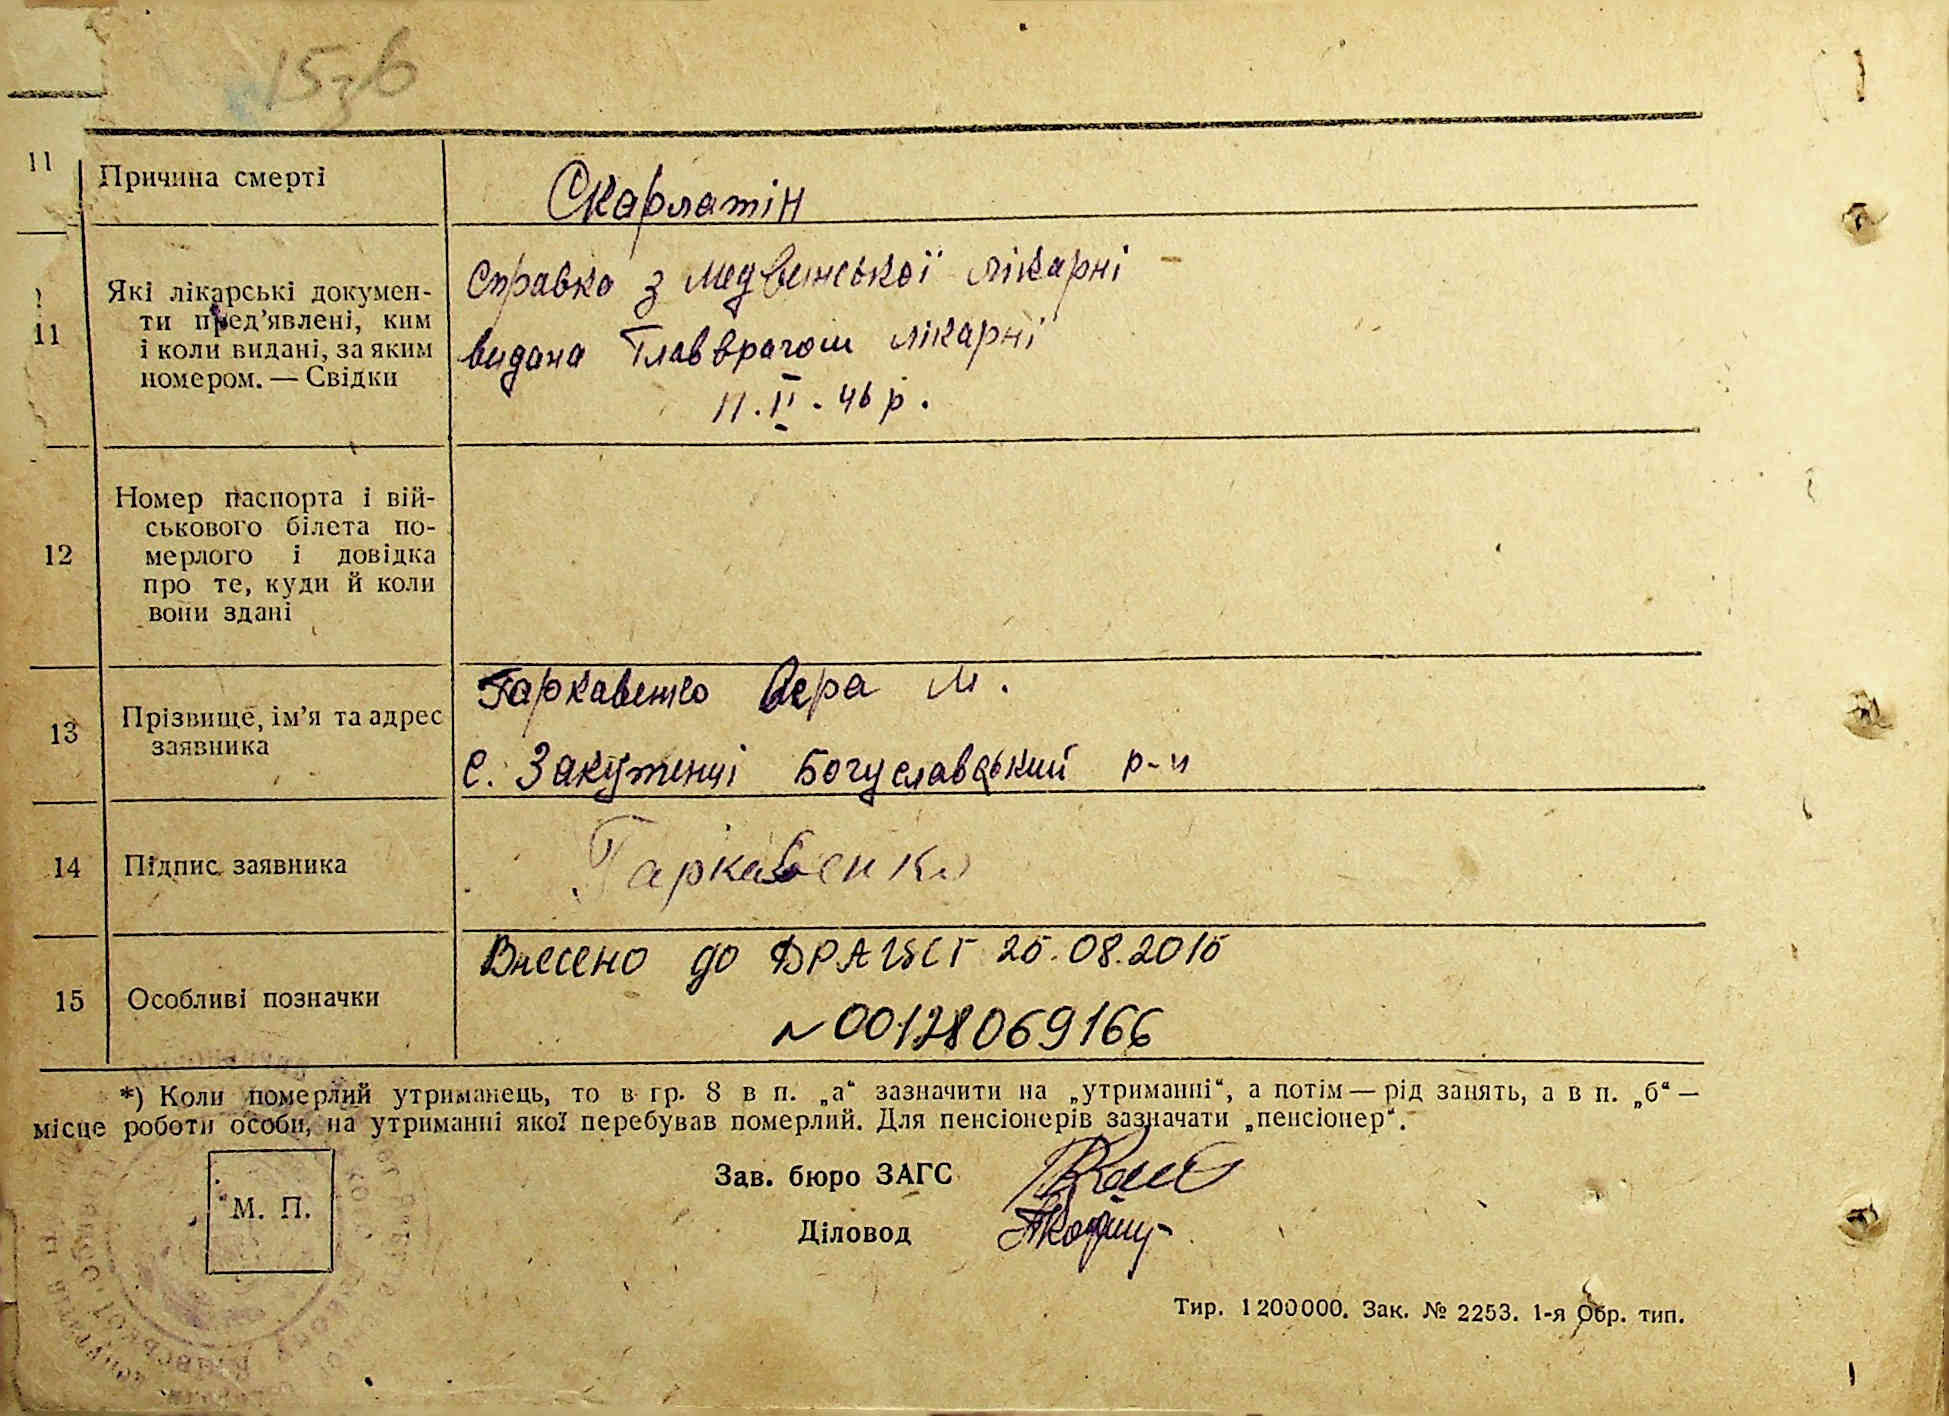 15зб
11
Причина смерті
Скарлатін
11
Які лікарські докумен-
ти пред’явлені, ким
і коли видані, за яким
номером. — Свідки
Справка з Медвинської лікарні
видана Главврагом лікарні
11. II. 46 р.
12
Номер паспорта і вій-
ськового білета по-
мерлого і довідка
про те, куди й коли
вони здані
13
Прізвище, ім’я та адрес
заявника
Гаркавенко Вера М.
с. Закутенці Богуславський р-н
14
Підпис заявника
Гаркавенко
15
Особливі позначки
Внесено до ДРАЦСГ 25.08.2015
N 00128069166
*) Коли померлий утриманець, то в гр. 8 в п. „а“ зазначити на „утриманні“, а потім — рід занять, а в п. „б“ —
місце роботи особи, на утриманні якої перебував померлий. Для пенсіонерів зазначати „пенсіонер“.
М. П.
Зав. бюро ЗАГС
Діловод
Тир. 1200000. Зак. № 2253. 1-я Обр. тип.